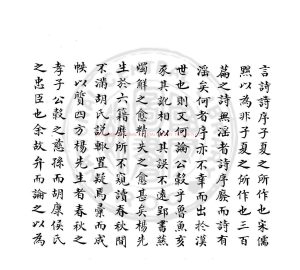 言詩詩序子夏之所作也宋儒
熙以為非子夏之所作也三百
篇之詩無淫者詩序廢而詩有
淫矣何者序亦不幸而出於漢
世也則又何論公穀乎魯魚亥
豕其訛相似其誤不遠郢書燕
燭解之愈精失之愈甚矣楊先
生於六籍靡所不窺讀春秋間
不滿胡氏説輙置疑焉彙而成
帙以質四方楊先生者春秋之
孝子公穀之慈孫而胡康侯氏
之忠臣也余故弁而論之以為